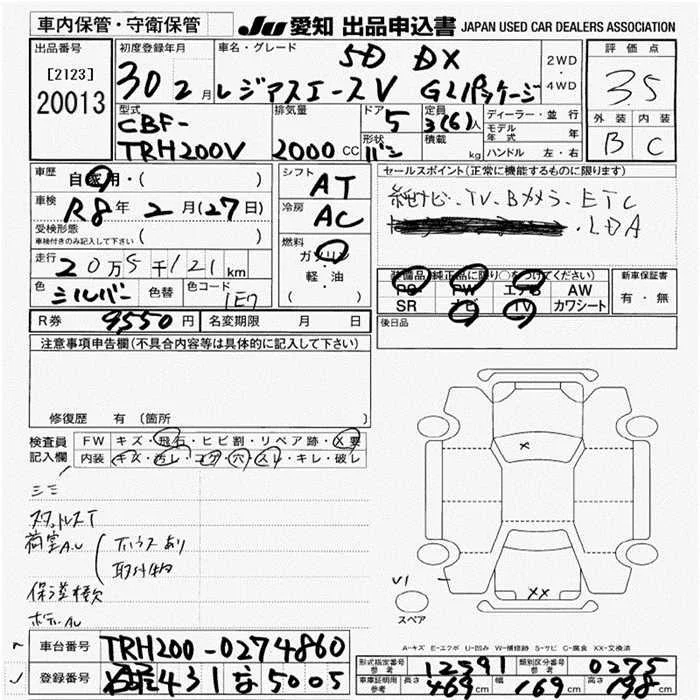 車内保管・守衛保管
JU 愛知 出品申込書 JAPAN USED CAR DEALERS ASSOCIATION
出品番号
[2123]
20013
初度登録年月
30 2月
車名・グレード
5D DX
レジアスエースV GLパッケージ
2WD
・
4WD
評価点
3.5
外装 内装
B C
型式
CBF-
TRH200V
排気量
2000 CC
ドア
5
形状
バン
定員
3(6)人
積載
kg
ディーラー・並行
モデル年式 年
ハンドル 左・右
車歴
自家用・( )
車検
R8年 2月(27日)
受検形態
車検付きのみ記入して下さい ( )
走行
20万5千121km
色
シルバー
色替
色コード
1E7
シフト
AT
冷房
AC
燃料
ガソリン
・
軽・油
( )
セールスポイント(正常に機能するものに限ります)
純ナビ・TV・Bカメラ・ETC
・LDA
装備品(純正品に限り○をつけてください)
PS PW エアB AW
SR ナビ TV カワシート
新車保証書
有・無
後日品
R券 9550円
名変期限 月 日
注意事項申告欄(不具合内容等は具体的に記入して下さい)
修復歴 有 (箇所 )
検査員
記入欄
FW キズ・飛石・ヒビ割・リペア跡・X要
内装 キズ・汚レ・コゲ・穴・スレ・キレ・破レ
荷室A.U
取付
V1
スペア
XX
A-キズ E-エクボ U-凹み W-補修跡 S-サビ C-腐食 XX-交換済
車台番号 TRH200-0274860
登録番号 431な5005
形式指定番号
参考
12391
類別区分番号
参考
0275
車庫証明用
参考
長さ 469cm 幅 169cm 高さ 198cm